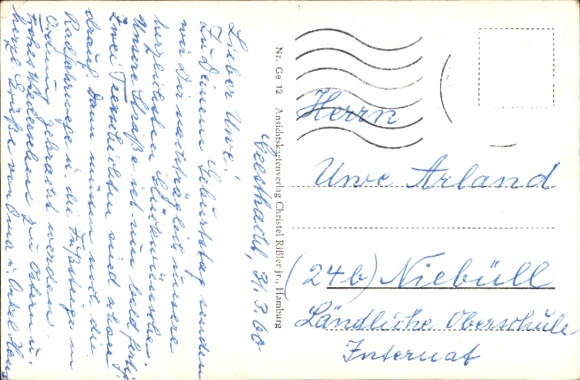 Geesthacht, 31.3.60
Lieber Uwe!
Zu Deinem Geburtstag senden
wir Dir nachträglich unsere
herzlichsten Glückwünsche.
Unsere Straße ist nun bald fertig,
zwei Teerschichten sind schon
drauf. Dann müssen noch die
Radfahrwege u. die Fußsteige in
Ordnung gebracht werden.
Frohes Wiedersehen zu Ostern u.
herzl. Grüße von Oma u. Onkel Hans
Nr. Ge 12 Ansichtskartenverlag Christel Rißler jr., Hamburg
Herrn
Uwe Arland
(24b) Niebüll
Ländliche Oberschule
Internat